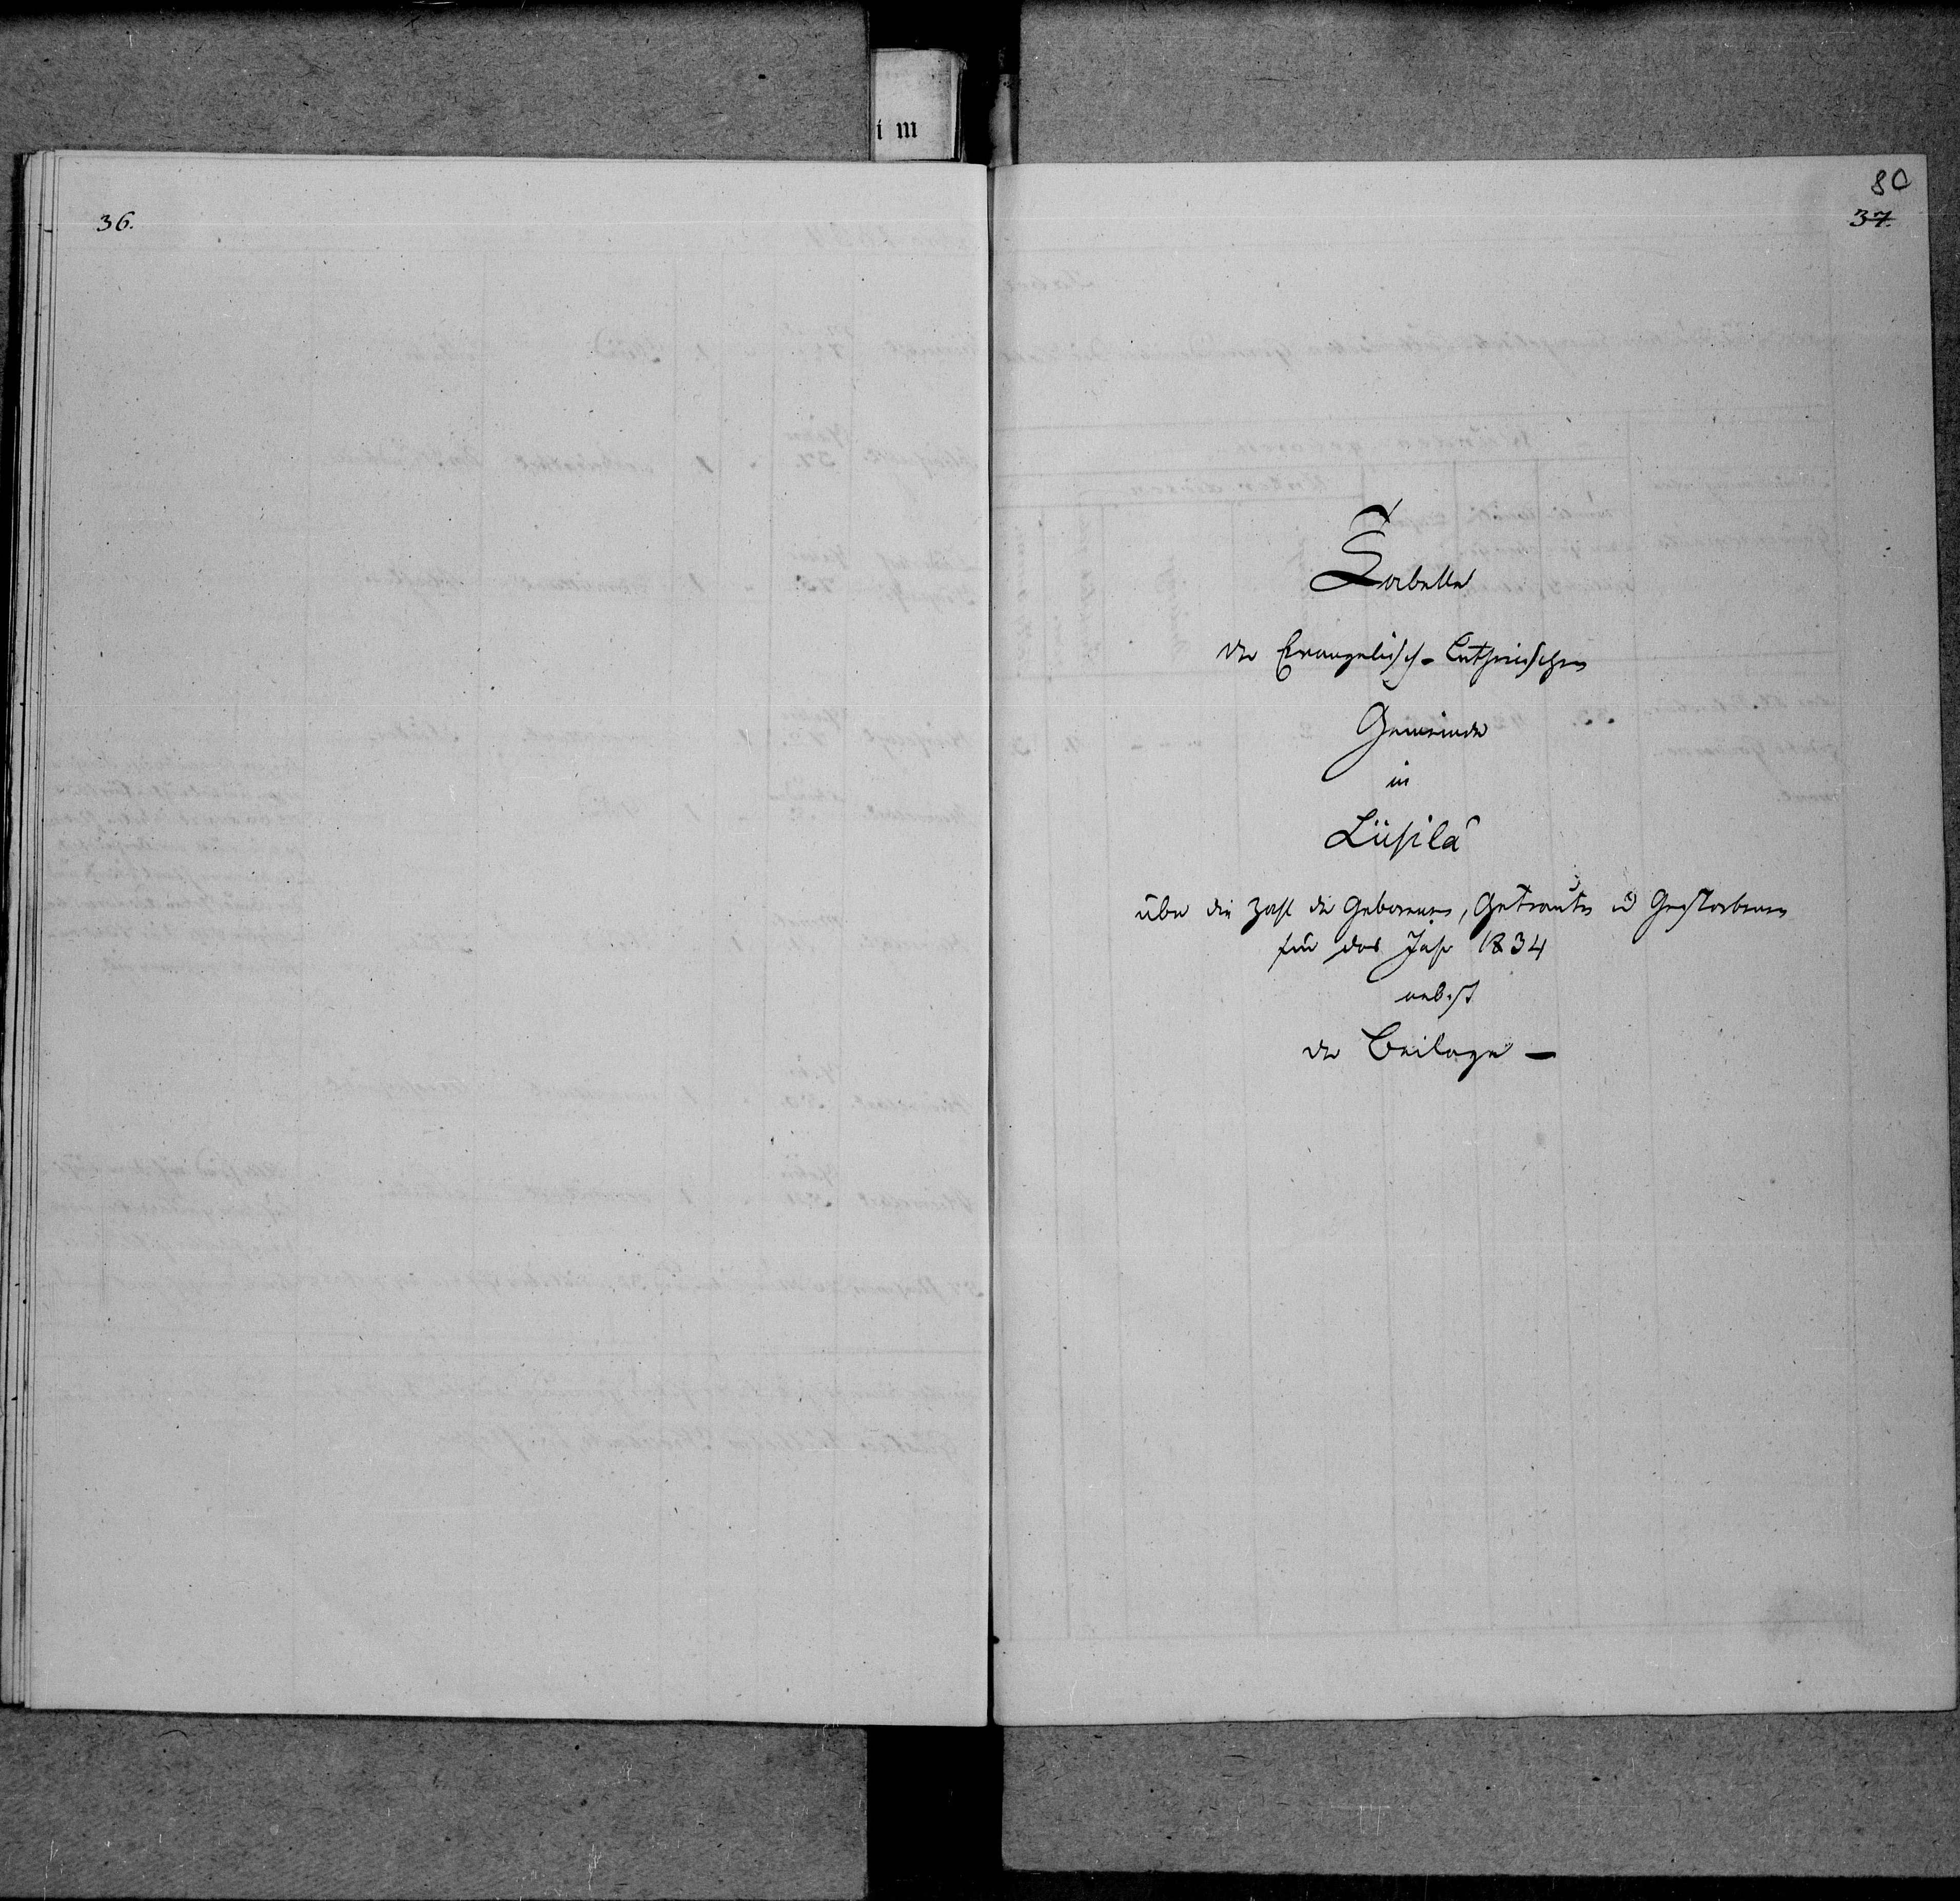 im
36.
80
37.
Tabelle
der Evangelisch-Lutherischen
Gemeinde
in
über die Zahl der Geborenen, Getrauten u Gestorbenen
für das Jahr 1834
nebst
der Beilage —